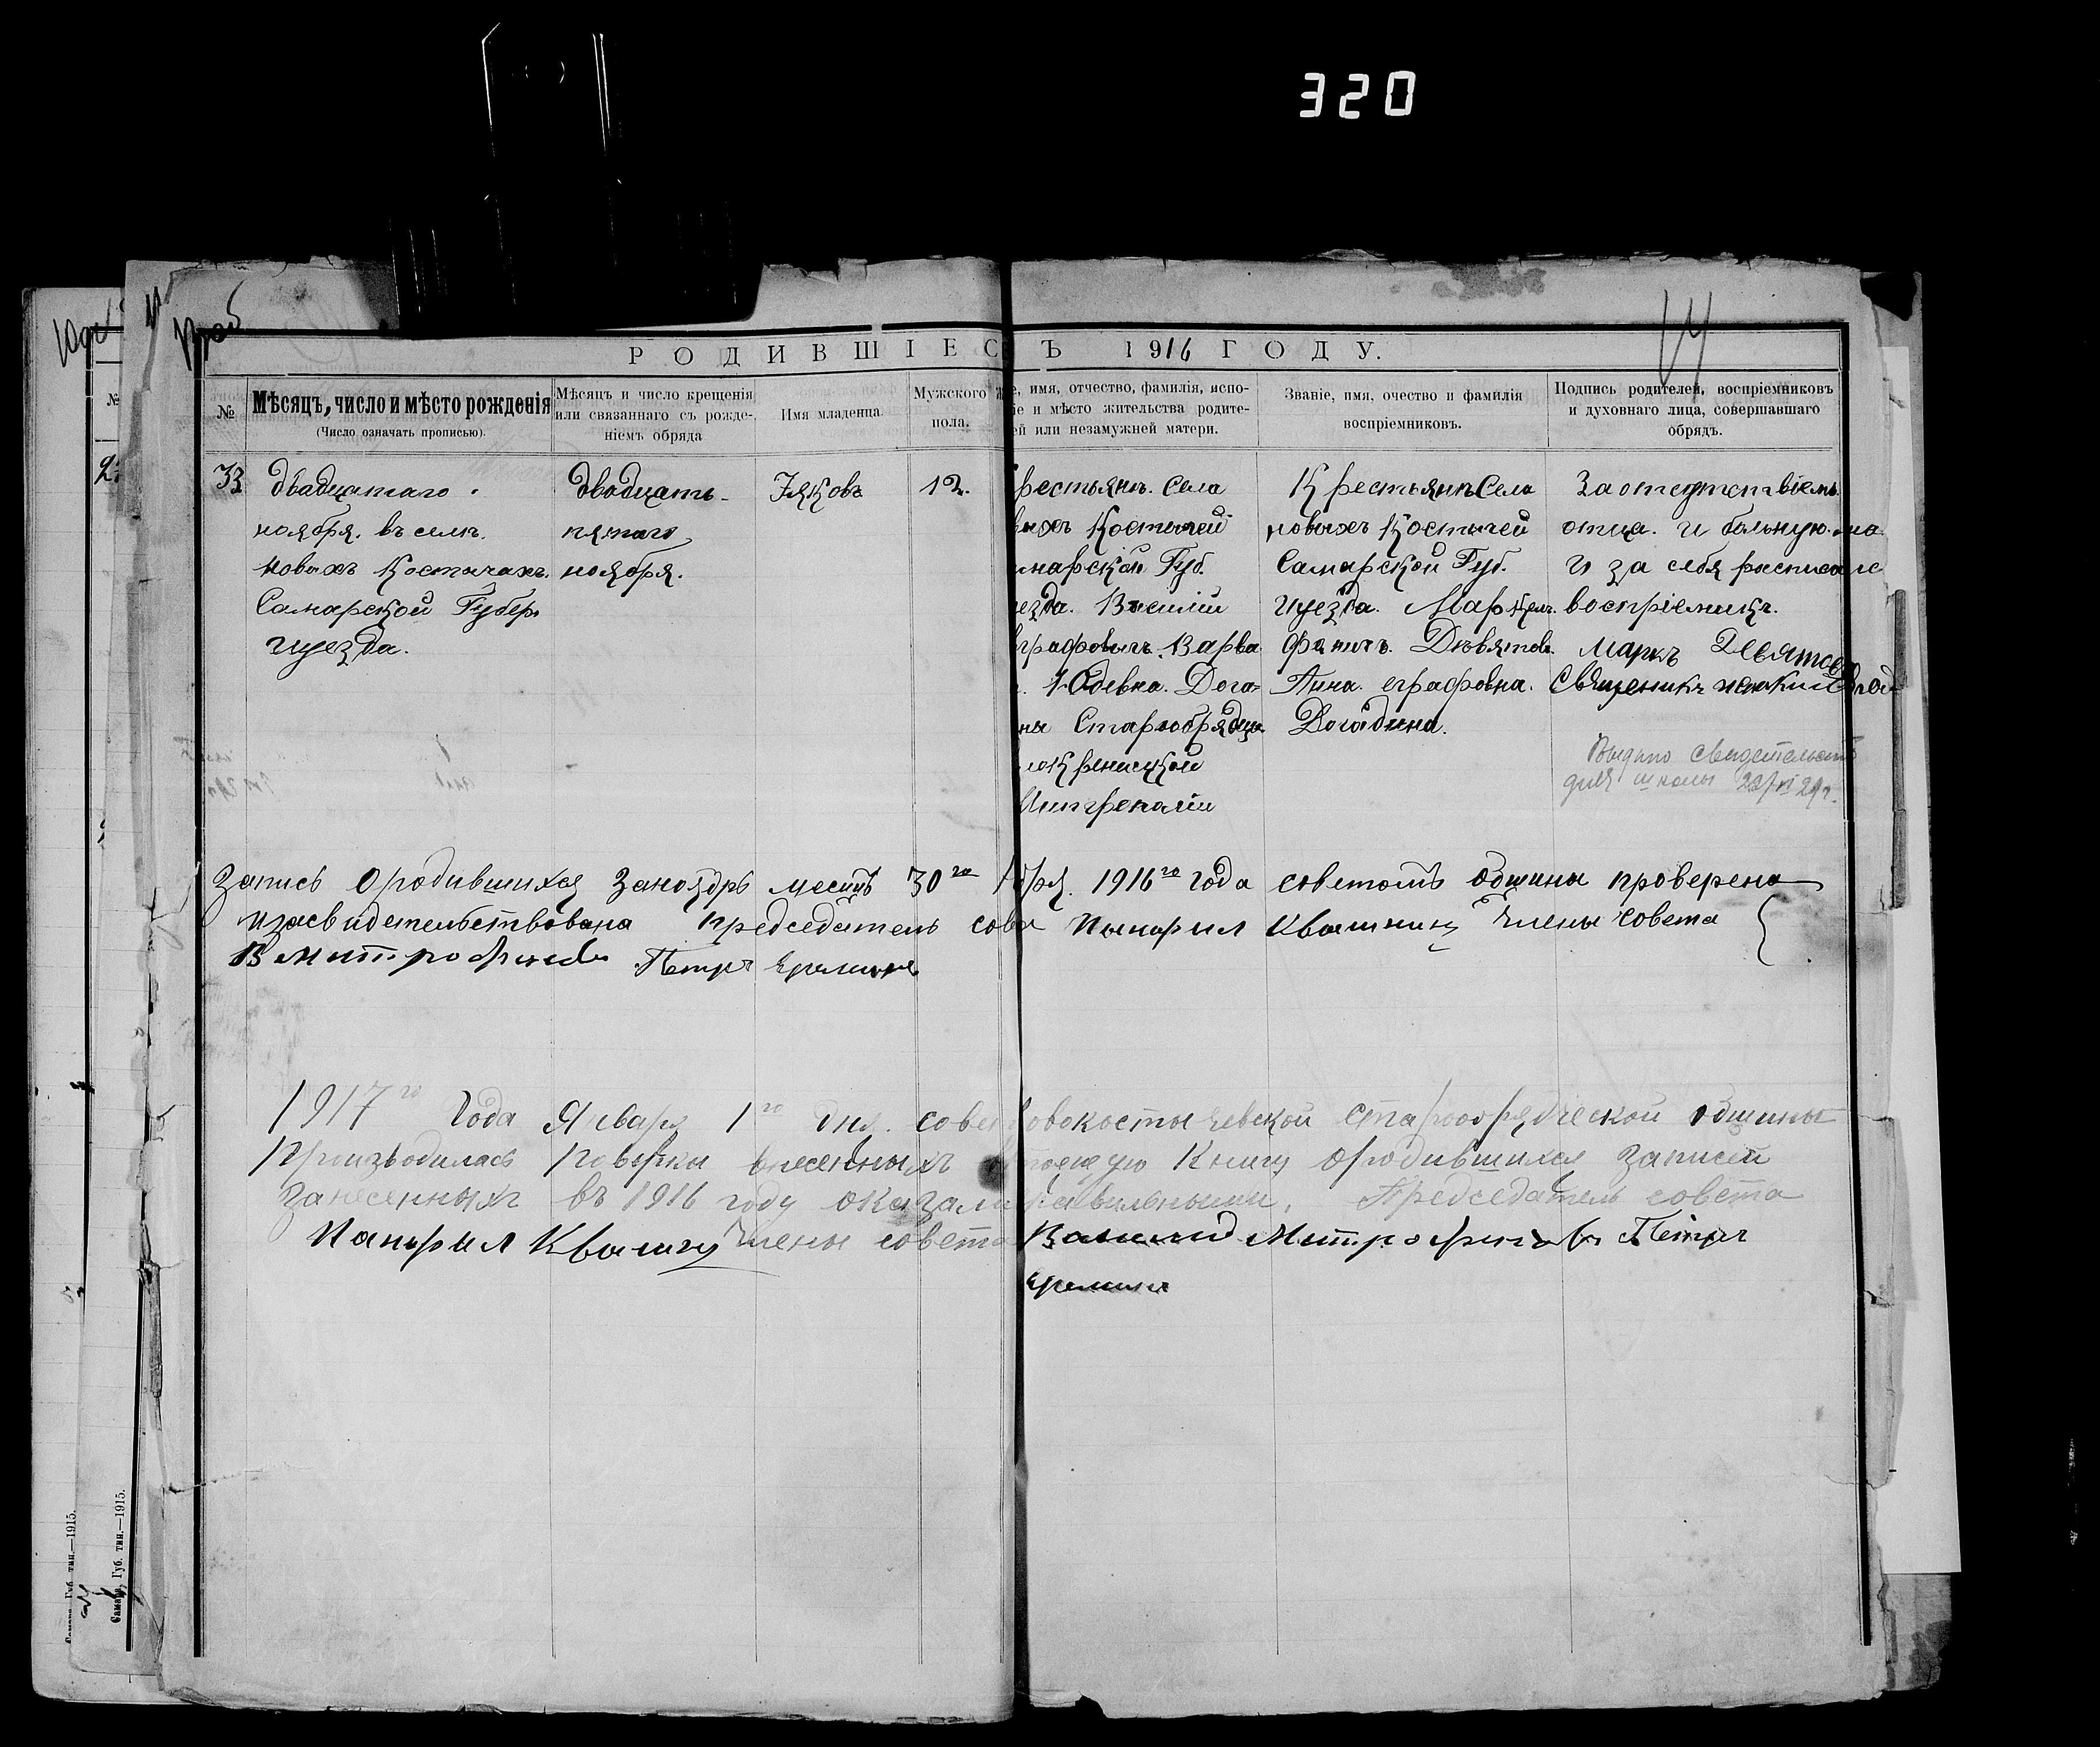 320
14
РОДИВШІЕС Ъ 1916 ГОДУ.
№
Мѣсяцъ, число и мѣсто рожденія
(Число означать прописью).
Мѣсяцъ и число крещенія
или связаннаго съ рожде-
ніемъ обряда
Имя младенца.
Мужского
пола.
е, имя, отчество, фамилія, испо-
іе и мѣсто жительства родите-
ей или незамужней матери.
Званіе, имя, очество и фамилія
воспріемниковъ.
Подпись родителей, воспріемниковъ
и духовнаго лица, совершавшаго
обрядъ.
33
двадцатаго
ноября. въ селѣ.
новыхъ Костычахъ.
Самарской Губер.
уезда.
двадцать-
пятаго
ноября.
Іяковъ
12.
рестьянъ. Села
выхъ Костычей
марской Губ.
езда.
графовичъ. Варва
Дога=
ны Старообрядцы
Крестьянъ Села
новыхъ Костычей
Самарской Губ.
уезда.
Дѣвятовъ.
Анна. еграфовна.
Догадина.
За отсутствіемъ
отца. и больную. ма
и за себя расписалс
воспріемникъ.
Маркъ Девятов
Священикъ
Выдано свидетельств
для школы
Запись о родившихся за ноябрь месяцъ 30го бря. 1916го года советомъ общины проверена
и засвидетельствована председатель сове Панфил Квашнин Члены Совета
В Митрофанов Петръ Еремин
1917го Года Января 1го дня. совет овокостычевской старообрядческой общины
Производилась поверка внесенныхъ Книгу о родившихся записей
занесенныхъ въ 1916 году оказали равильными. Председатель совета
Панфил Квашни Члены совета Василий Митрофанов Петръ
Еремин
Самар. Губ. тип.—1915.
Самар. Губ. тип.—1915.